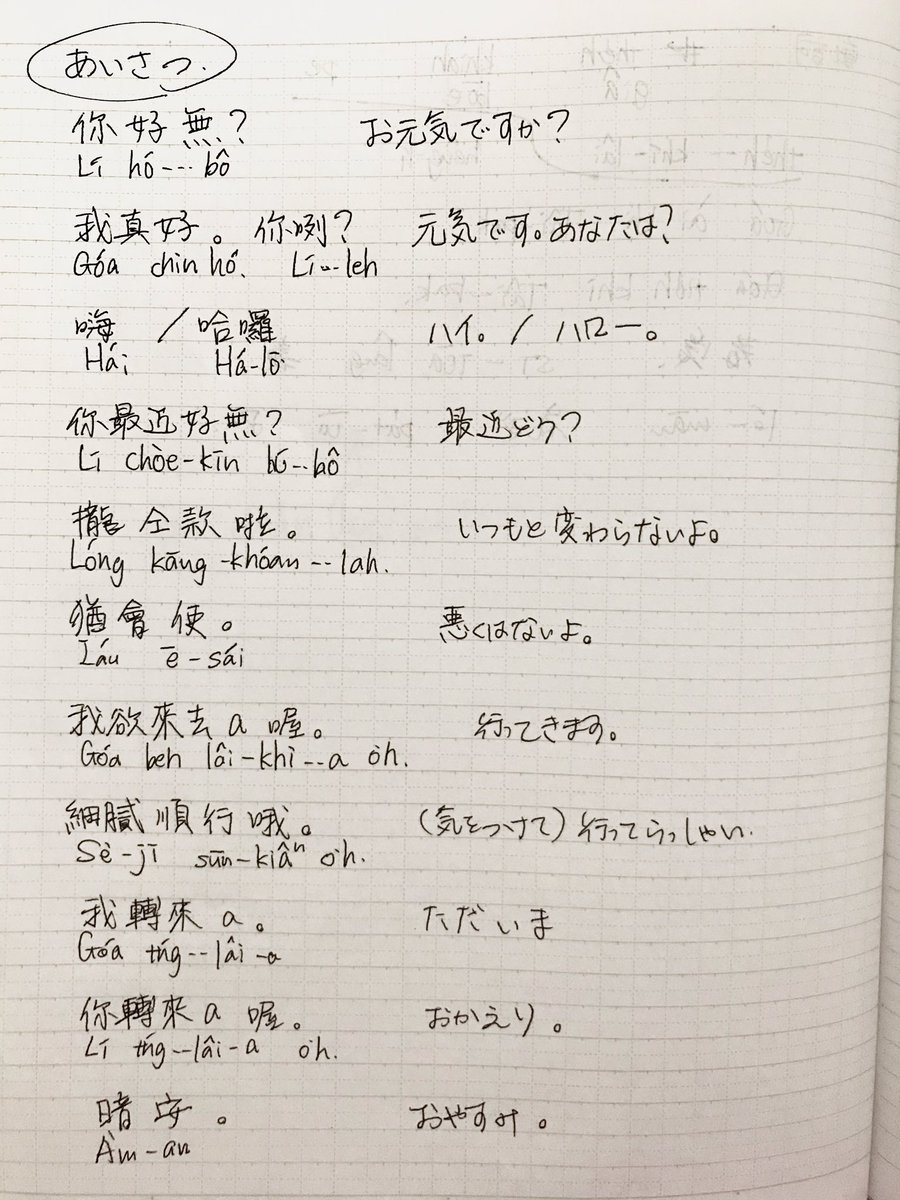 あいさつ.
你好無? お元気ですか?
Lí hó--bô
我真好。你咧? 元気です。あなたは?
Góa chin hó. Lí--leh
嗨 / 哈囉 ハイ。/ ハロー。
Hái Há-lō
你最近好無? 最近どう?
Lí chòe-kīn hó--bô
攏仝款啦。 いつもと変わらないよ。
Lóng kāng-khóan--lah.
猶會使。 悪くはないよ。
Iáu ē-sái
我欲來去a喔。 行ってきます。
Góa beh lâi-khì--a o͘h.
細膩順行哦。 (気をつけて)行ってらっしゃい.
Sè-jī sūn-kiâⁿ o͘h.
我轉來a。 ただいま
Góa tńg--lâi-a
你轉來a喔。 おかえり。
Lí tńg--lâi-a o͘h.
暗安。 おやすみ。
Àm-an